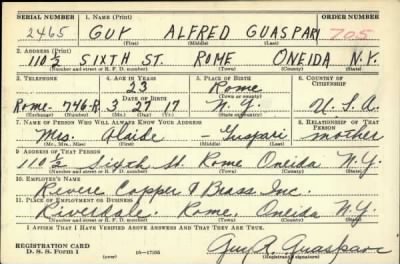 SERIAL NUMBER 1. NAME (Print) ORDER NUMBER
2465 GUY ALFRED GUASPARI 705
(First) (Middle) (Last)
2. ADDRESS (Print)
110½ SIXTH ST. ROME ONEIDA N.Y.
(Number and street or R. F. D. number) (Town) (County) (State)
3. TELEPHONE 4. AGE IN YEARS 5. PLACE OF BIRTH 6. COUNTRY OF CITIZENSHIP
23 Rome
DATE OF BIRTH (Town or county)
Rome 746-R 3 27 17 N.Y. U.S.A.
(Exchange) (Number) (Mo.) (Day) (Yr.) (State or country)
7. NAME OF PERSON WHO WILL ALWAYS KNOW YOUR ADDRESS 8. RELATIONSHIP OF THAT PERSON
Mrs. Alaide - Guspari mother
(Mr., Mrs., Miss) (First) (Middle) (Last)
9. ADDRESS OF THAT PERSON
110½ Sixth St. Rome Oneida N.Y.
(Number and street or R. F. D. number) (Town) (County) (State)
10. EMPLOYER'S NAME
Revere Copper & Brass Inc.
11. PLACE OF EMPLOYMENT OR BUSINESS
Riverdale. Rome. Oneida N.Y.
(Number and street or R. F. D. number) (Town) (County) (State)
I AFFIRM THAT I HAVE VERIFIED ABOVE ANSWERS AND THAT THEY ARE TRUE.
REGISTRATION CARD
D. S. S. Form 1 (over) 16-17105 Guy A. Guaspari
(Registrant's signature)